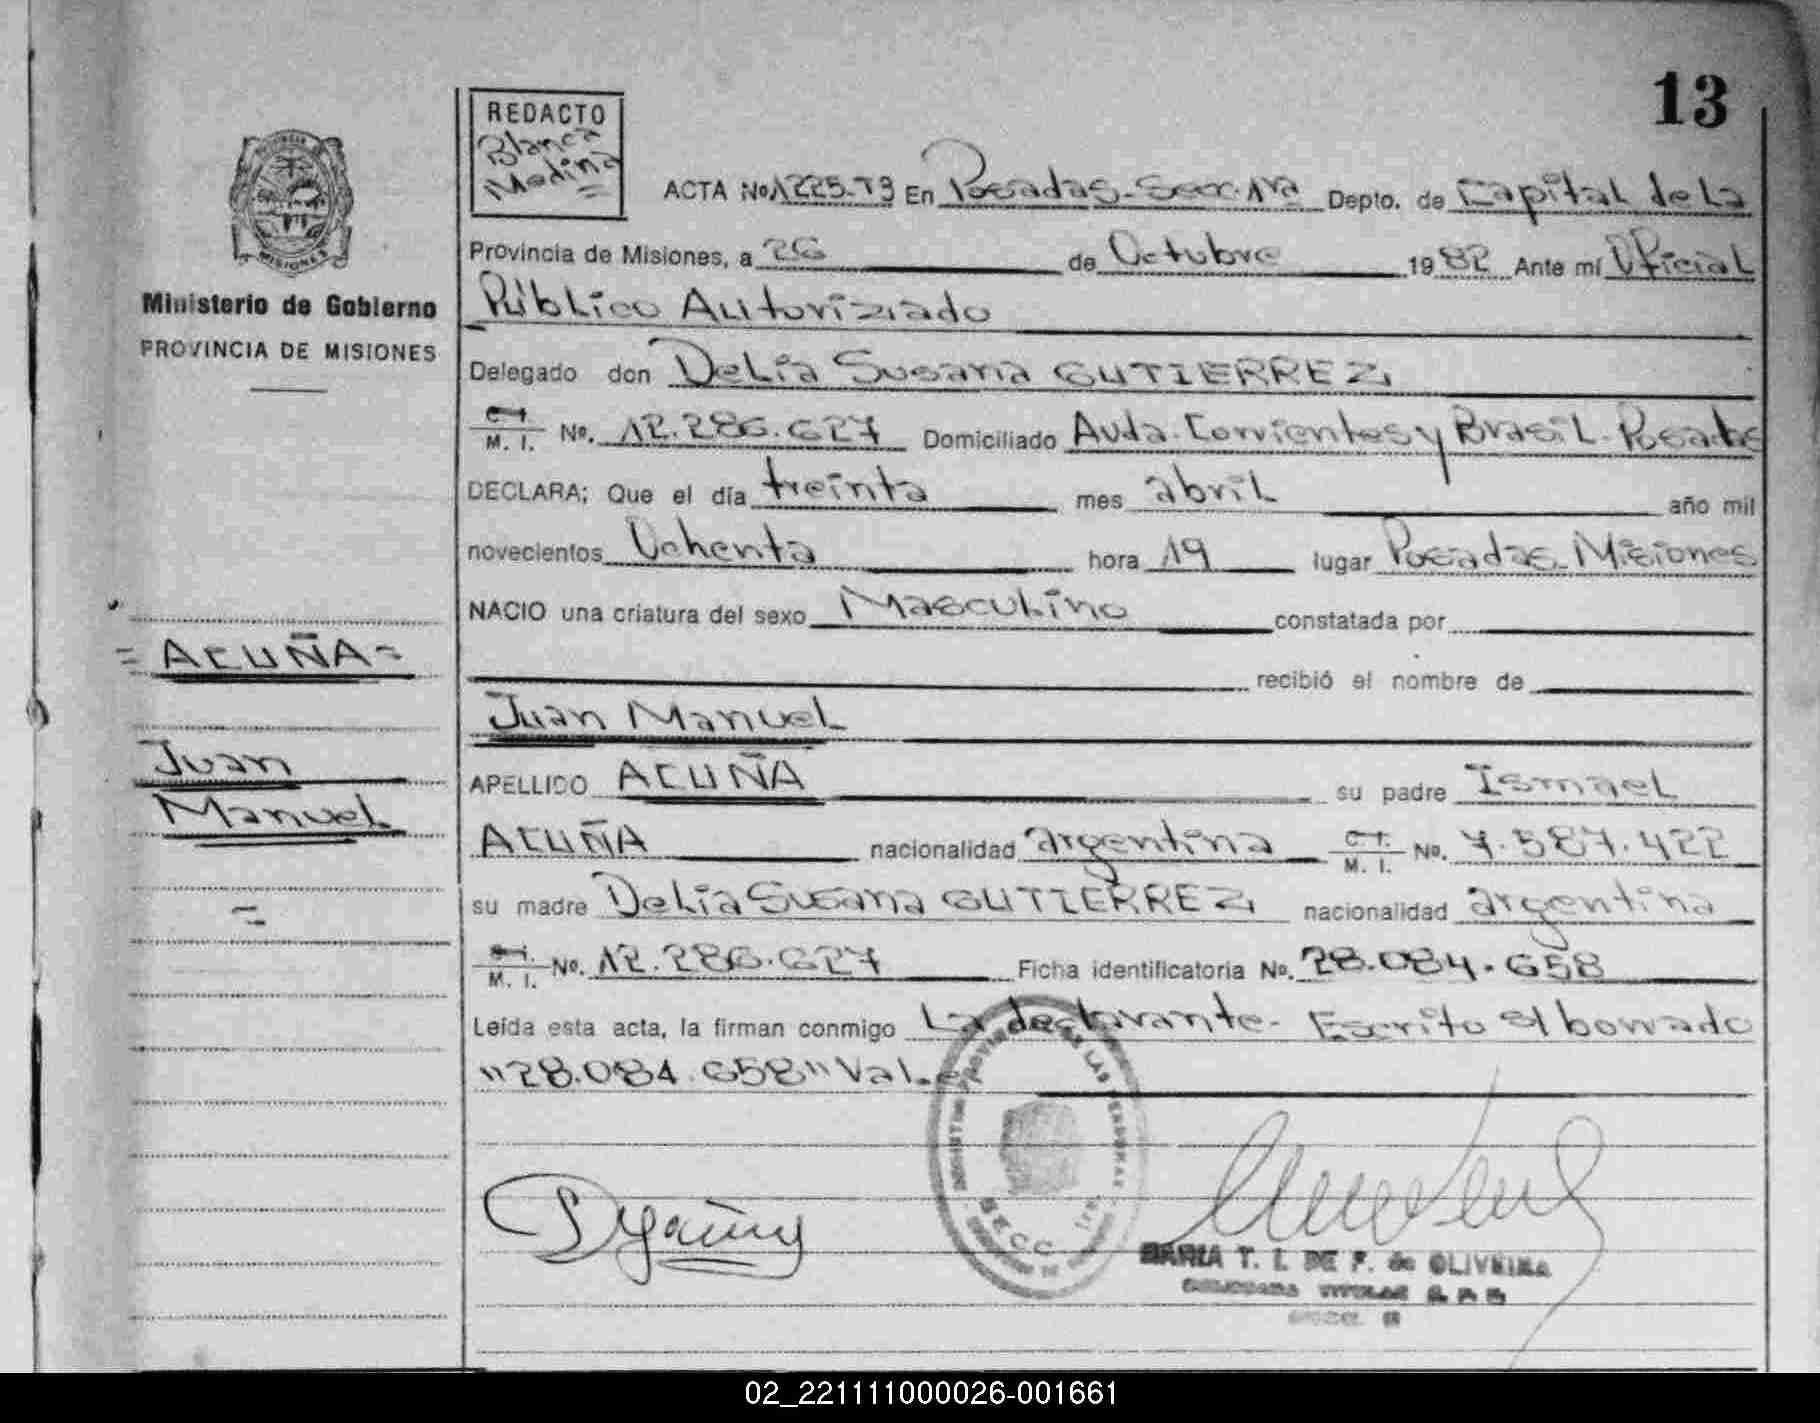 13
REDACTO
Blanca
Medina
ACTA No. 1225-T3 En Posadas-Secc. 1ra Depto. de Capital de La
Provincia de Misiones, a 26 de Octubre 1982 Ante mí Oficial
Público Autorizado
Delegado don Delia Susana GUTIERREZ
M. I. No. 12.286.627 Domiciliado Avda. Corrientes y Brasil. Posadas
DECLARA; Que el día treinta mes abril año mil
novecientos Ochenta hora 19 lugar Posadas-Misiones
NACIO una criatura del sexo Masculino constatada por
recibió el nombre de
Juan Manuel
APELLIDO ACUÑA su padre Ismael
ACUÑA nacionalidad argentina C. I. M. I. No. 7.587.422
su madre Delia Susana GUTIERREZ nacionalidad argentina
M. I. No. 12.286.627 Ficha identificatoria No. 28.084.658
Leída esta acta, la firman conmigo La declarante- Escrito s/ borrado
"28.084.658" Vale
MARIA T. I. DE F. de OLIVEIRA
MISIONES
Ministerio de Gobierno
PROVINCIA DE MISIONES
=ACUÑA=
Juan
Manuel
=
02_221111000026-001661